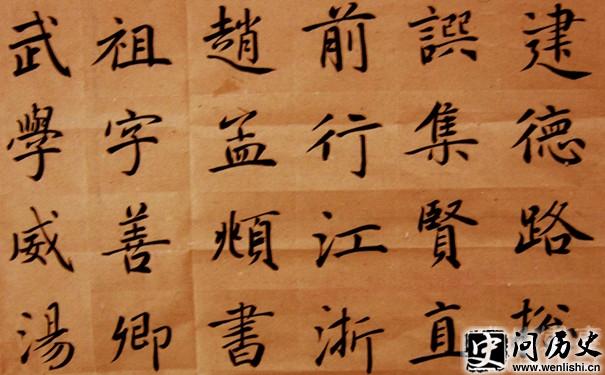 建德路
譔集賢直
前行江浙
趙孟頫書
祖字善卿
武學威湯
问历史
www.wenlishi.cn